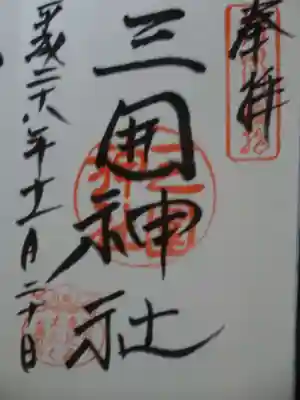 奉拝
三囲神社
平成二十八年十一月二十日